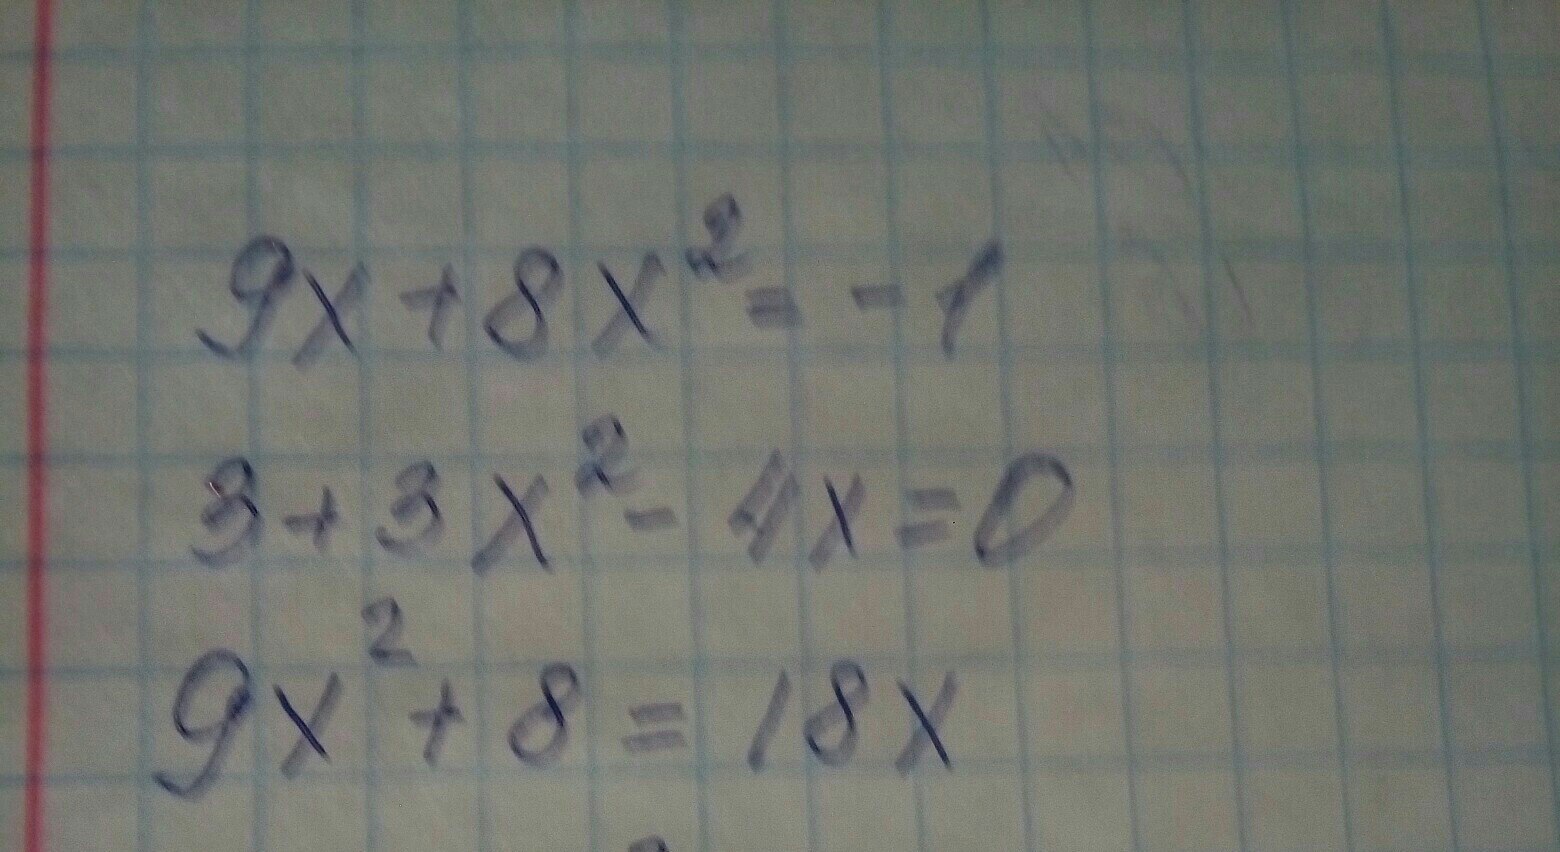 9x + 8x² = -1
3 + 3x² - 4x = 0
9x² + 8 = 18x